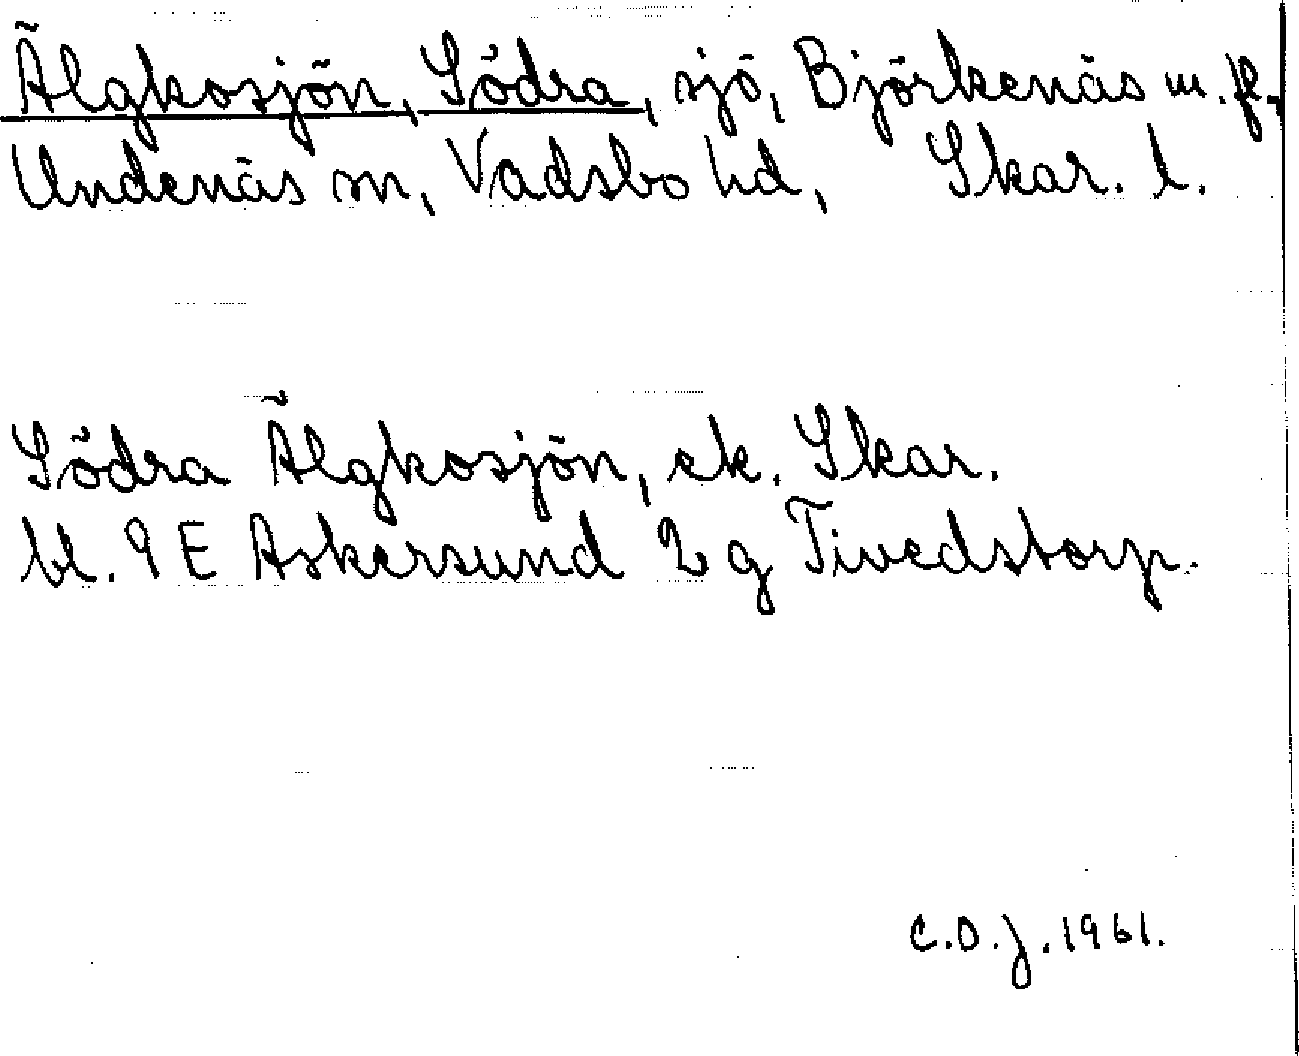 Älgkosjön, Södra, sjö, Björkenäs m. fl.,
Undenäs sn, Vadsbo hd, Skar. l.
Södra Älgkosjön, ek. Skar.
bl. 9 E Askersund 2 g Tivedstorp.
C.O.J. 1961.